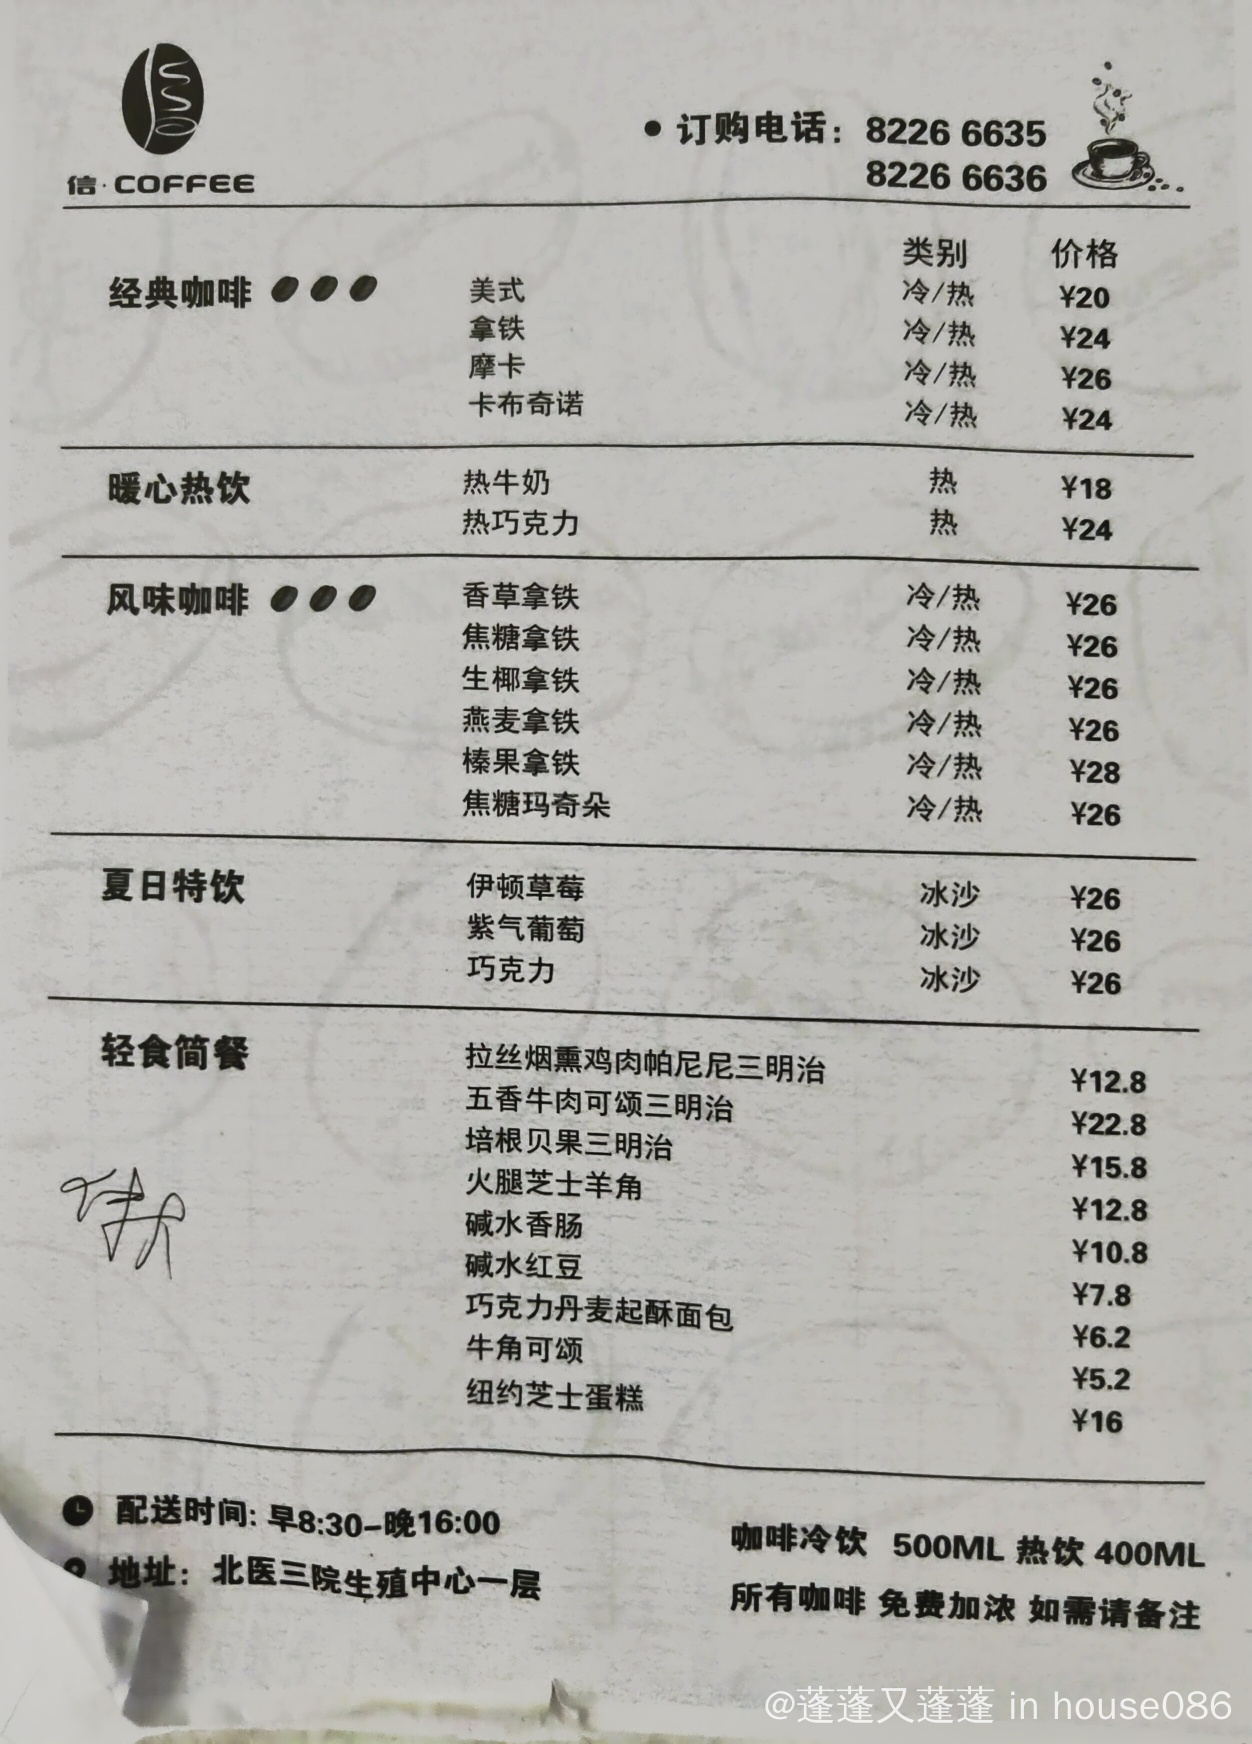 信·COFFEE
• 订购电话：8226 6635
8226 6636
类别 价格
经典咖啡 美式 冷/热 ¥20
拿铁 冷/热 ¥24
摩卡 冷/热 ¥26
卡布奇诺 冷/热 ¥24
暖心热饮 热牛奶 热 ¥18
热巧克力 热 ¥24
风味咖啡 香草拿铁 冷/热 ¥26
焦糖拿铁 冷/热 ¥26
生椰拿铁 冷/热 ¥26
燕麦拿铁 冷/热 ¥26
榛果拿铁 冷/热 ¥28
焦糖玛奇朵 冷/热 ¥26
夏日特饮 伊顿草莓 冰沙 ¥26
紫气葡萄 冰沙 ¥26
巧克力 冰沙 ¥26
轻食简餐 拉丝烟熏鸡肉帕尼尼三明治 ¥12.8
五香牛肉可颂三明治 ¥22.8
培根贝果三明治 ¥15.8
火腿芝士羊角 ¥12.8
碱水香肠 ¥10.8
碱水红豆 ¥7.8
巧克力丹麦起酥面包 ¥6.2
牛角可颂 ¥5.2
纽约芝士蛋糕 ¥16
配送时间：早8:30-晚16:00
地址：北医三院生殖中心一层
咖啡冷饮 500ML 热饮 400ML
所有咖啡 免费加浓 如需请备注
@蓬蓬又蓬蓬 in house086